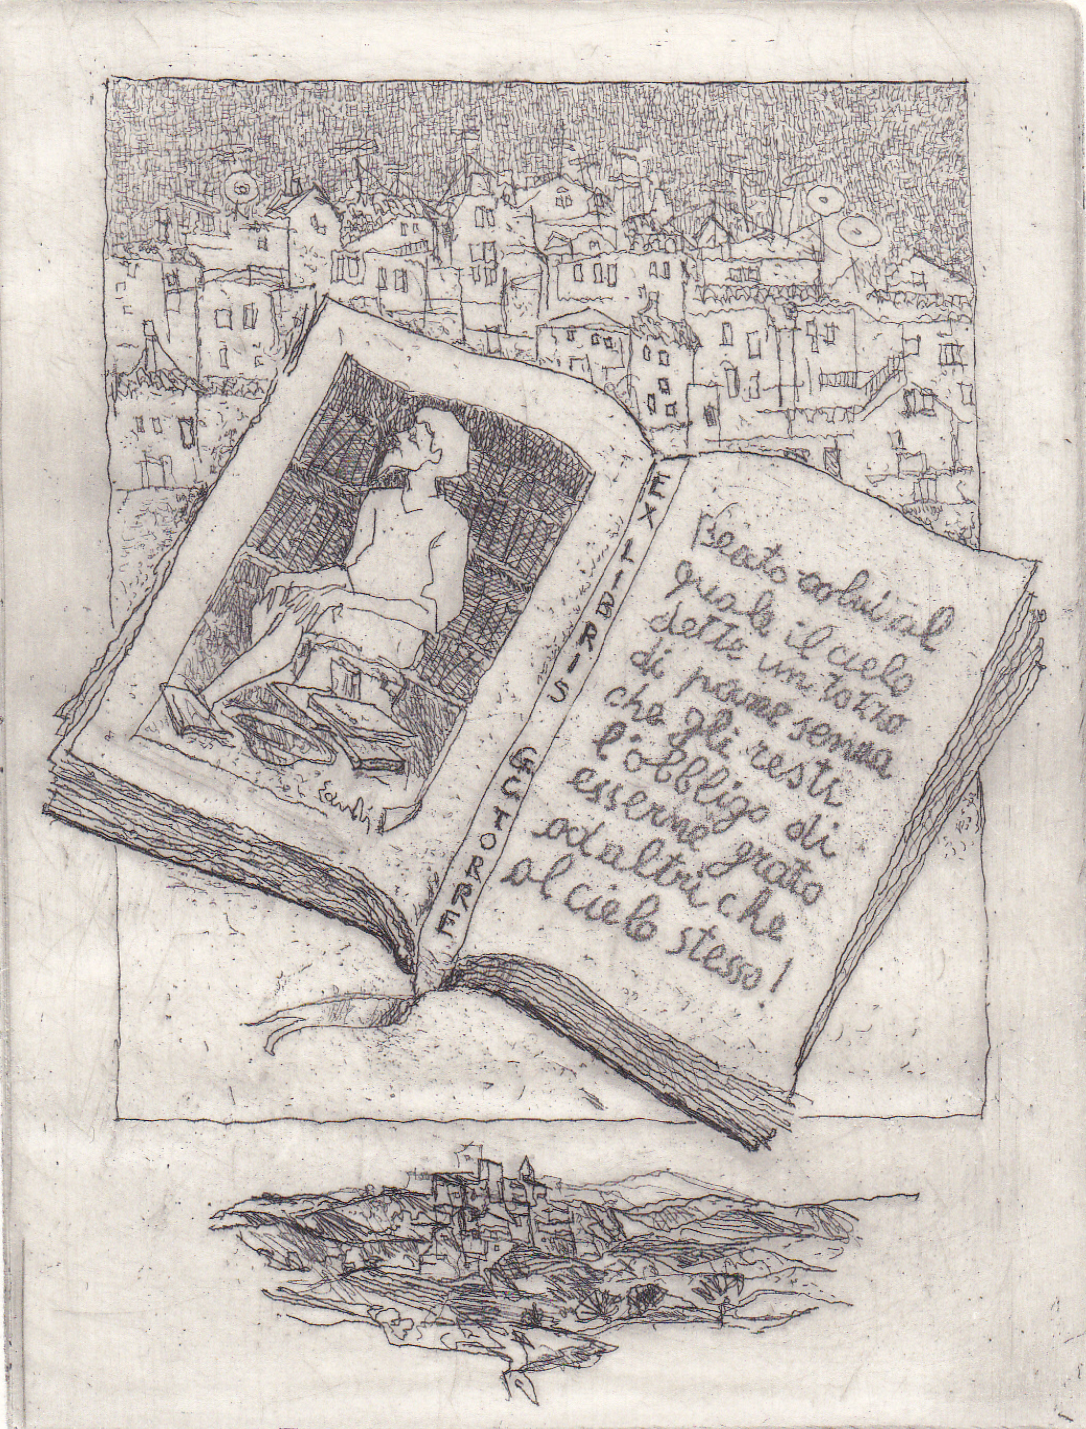 EX LIBRIS
G.C. TORRE
Beato colui al
quale il cielo
dette un tozzo
di pane senza
che gli resti
l'obbligo di
esserne grato
ad altri che
al cielo stesso!